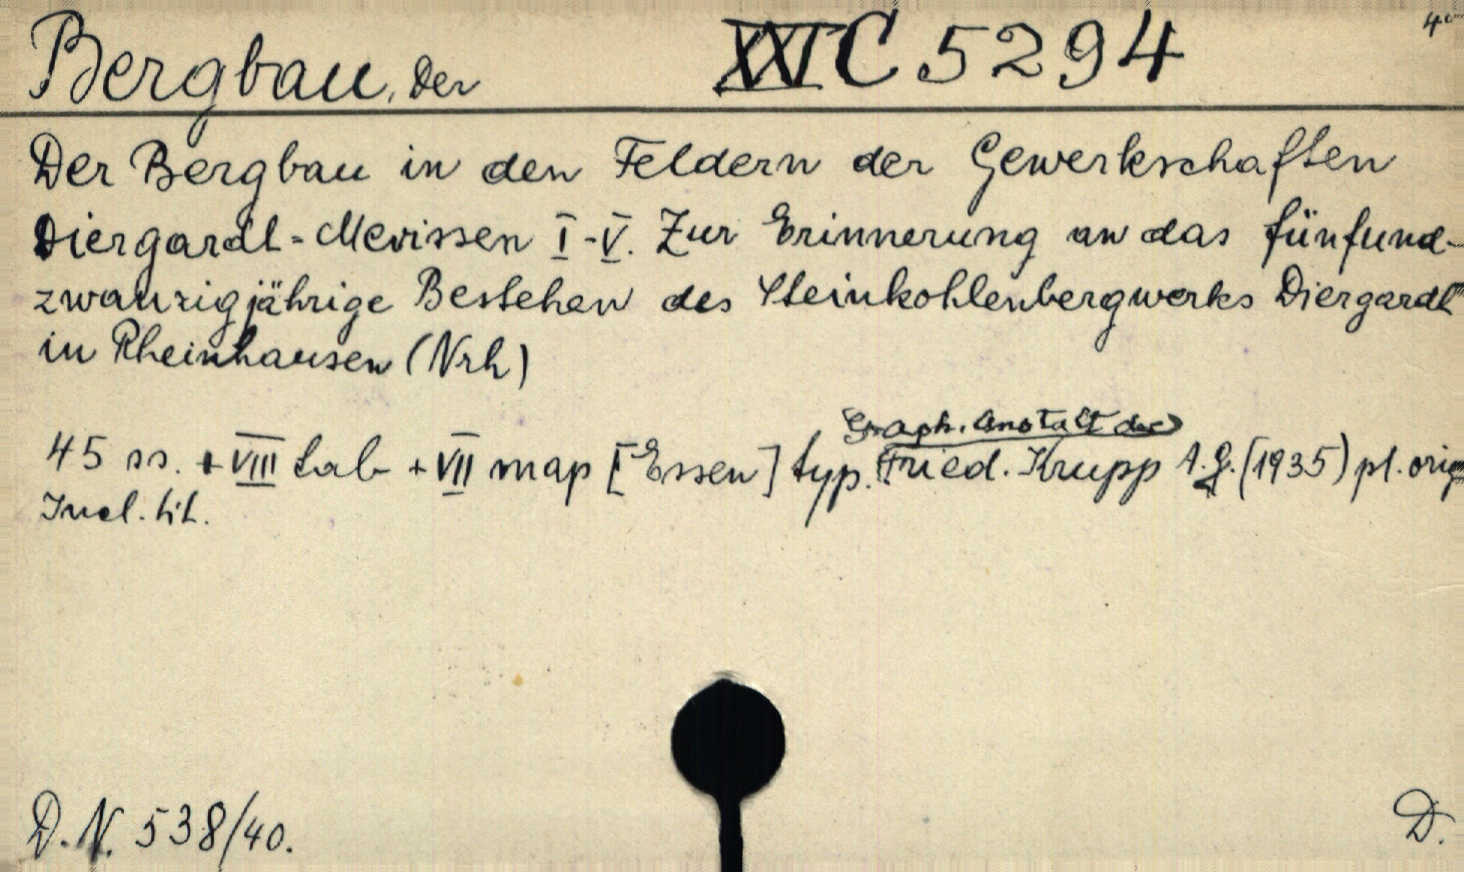 Bergbau, Der XXI C 5294 4°
Der Bergbau in den Feldern der Gewerkschaften
Diergardt-Mevissen I-V. Zur Erinnerung an das fünfund-
zwanzigjährige Bestehen des Steinkohlenbergwerks Diergardt
in Rheinhausen (Nrh)
Graph. Anstalt der
45 ss. + VIII tab + VII map [Essen] typ. Fried. Krupp A.G. (1935) pl. orig
Incl. tit.
D. N. 538/40. D.